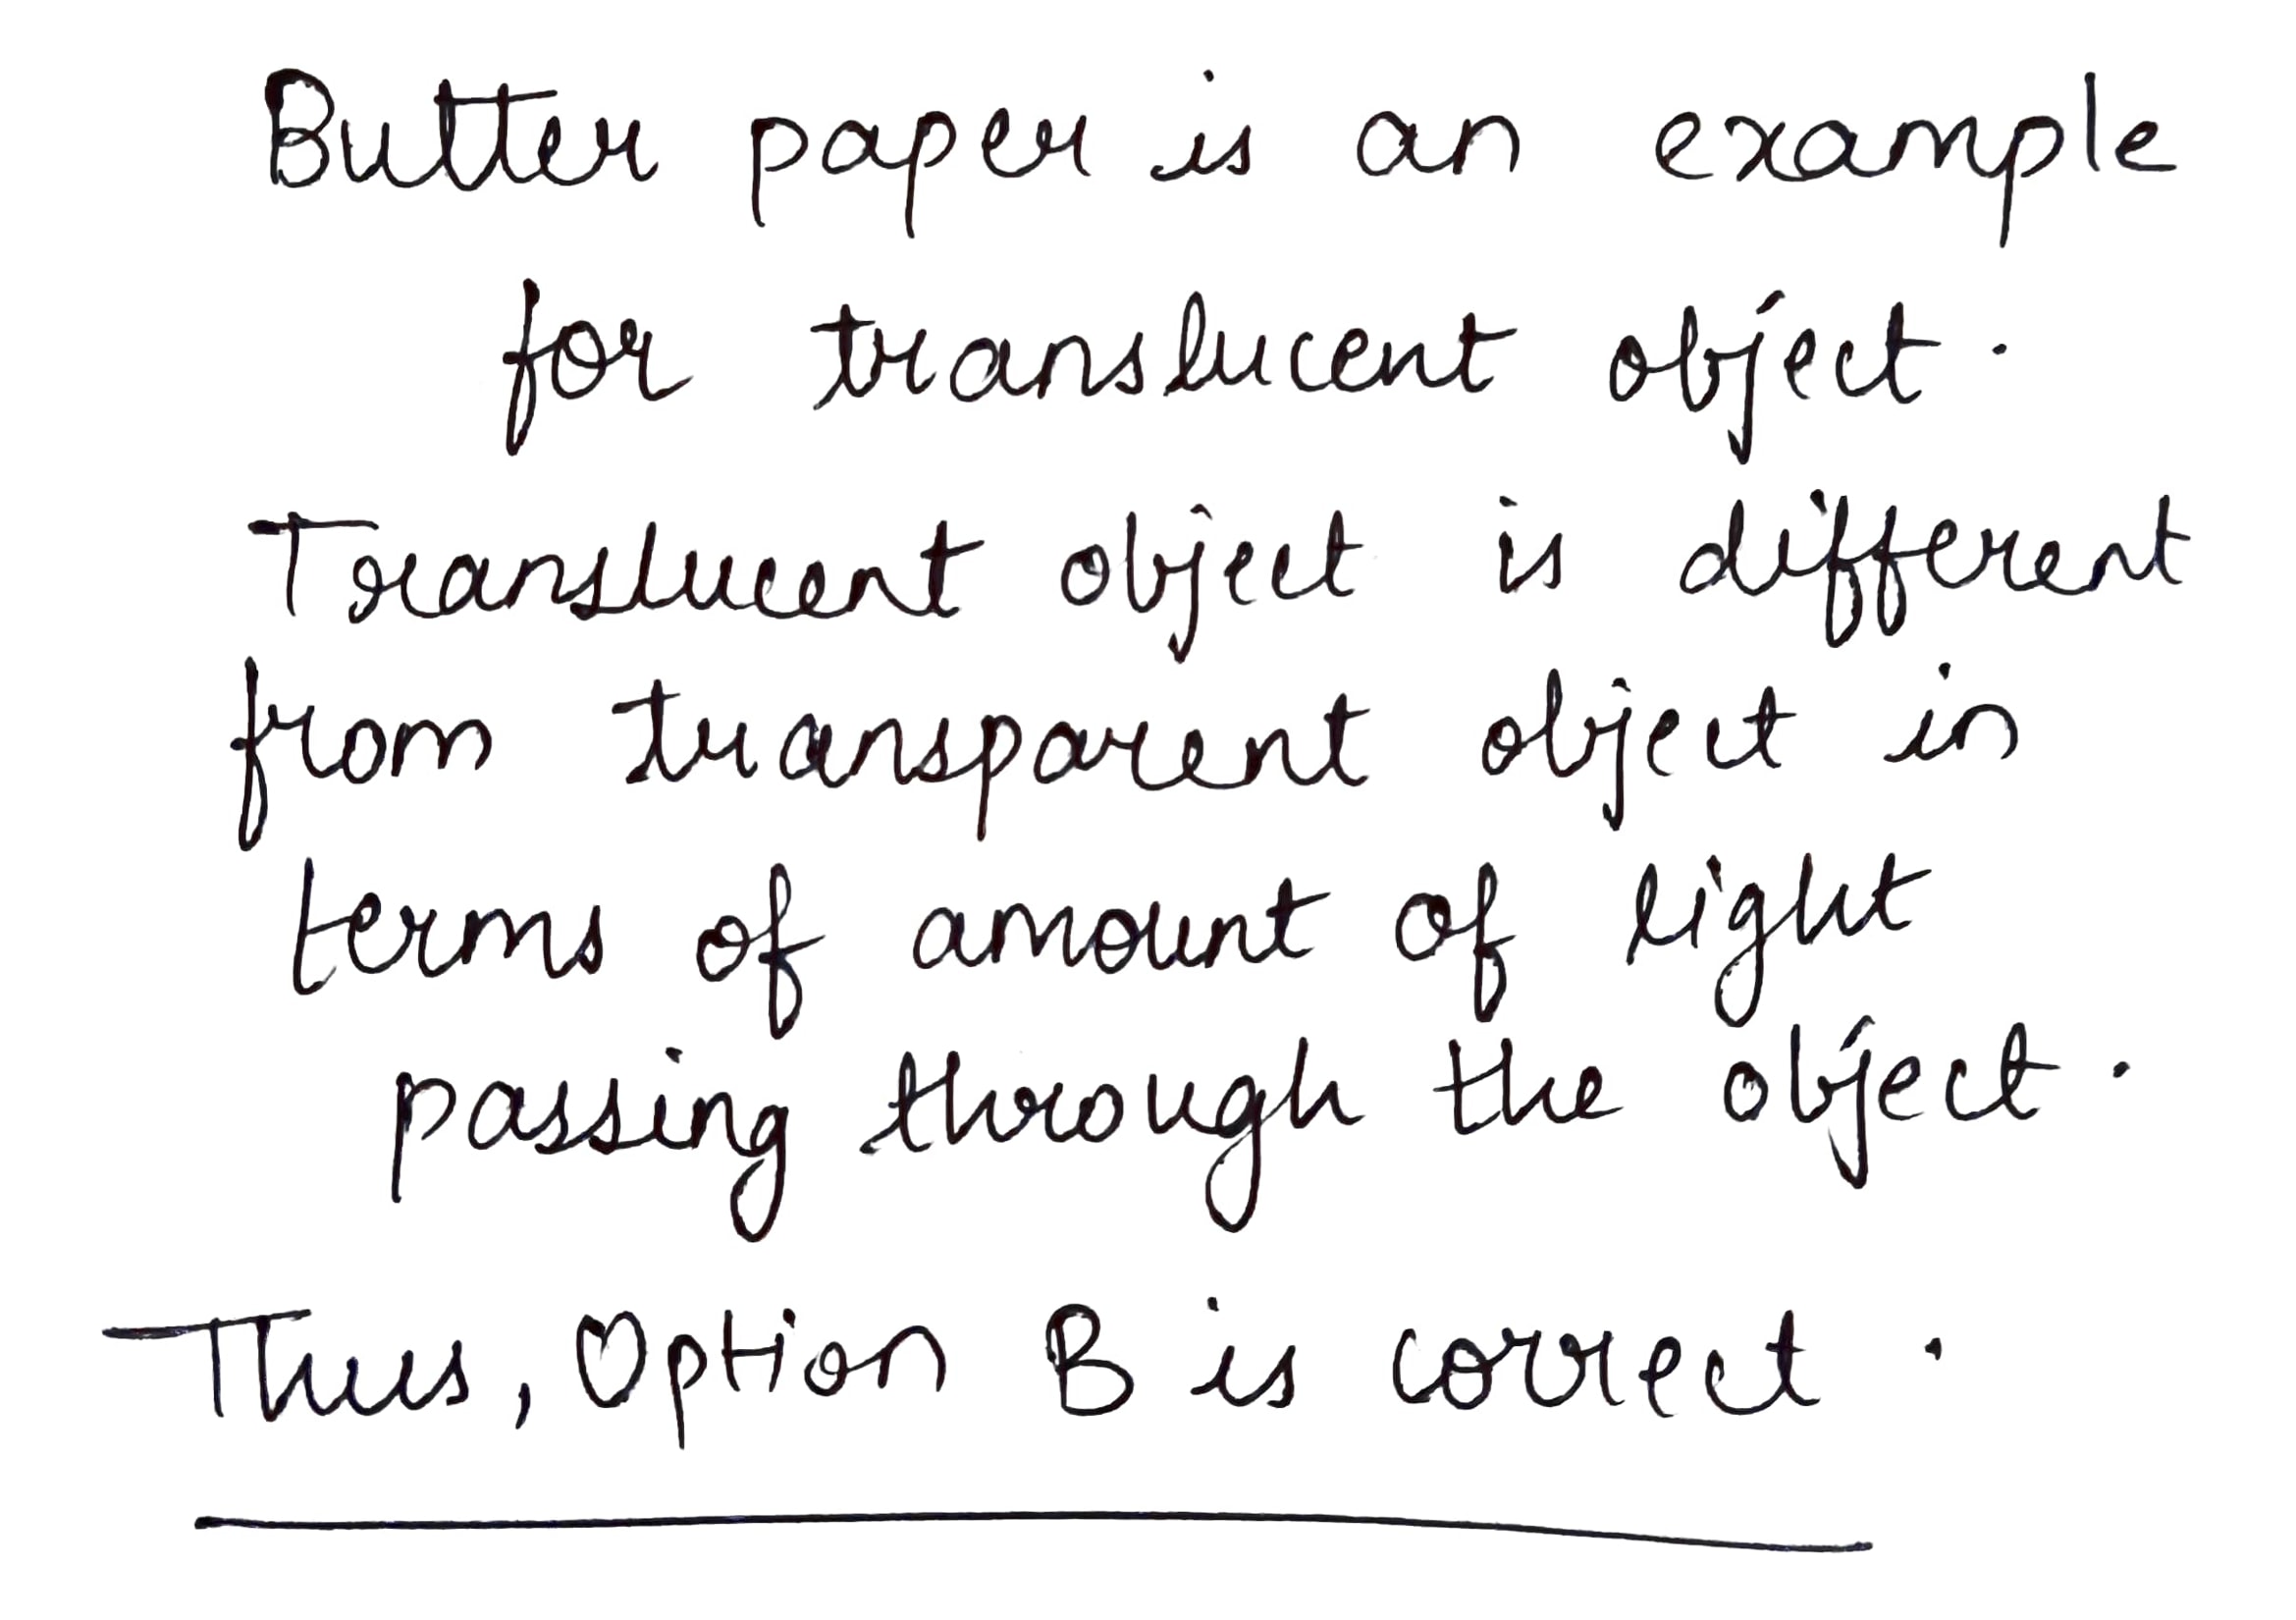 Butter paper is an example
for translucent object.
Translucent object is different
from transparent object in
terms of amount of light
passing through the object.
Thus, Option B is correct.